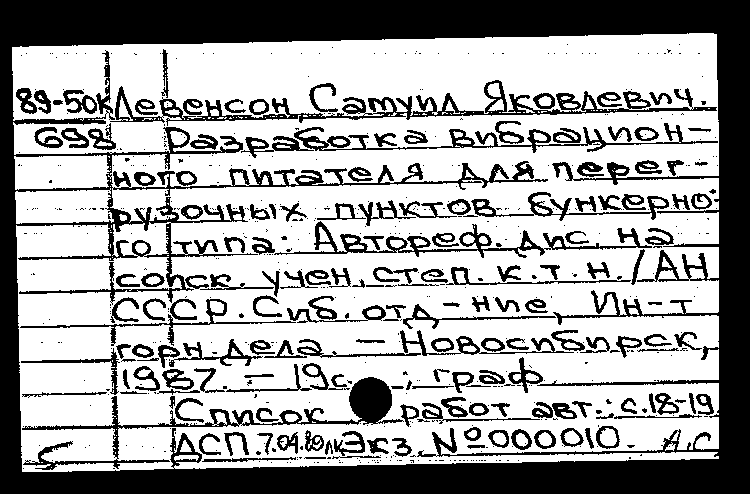 89-50к Левенсон, Самуил Яковлевич.
698 Разработка вибрацион-
ного питателя для перег-
рузочных пунктов бункерно-
го типа: Автореф. дис. на
соиск. учен. степ. к. т. н. / АН
СССР. Сиб. отд-ние, Ин-т
горн. дела. – Новосибирск,
1987. – 19с. ; граф.
Список работ авт.: с. 18-19.
ДСП. Экз. № 000010. А.С